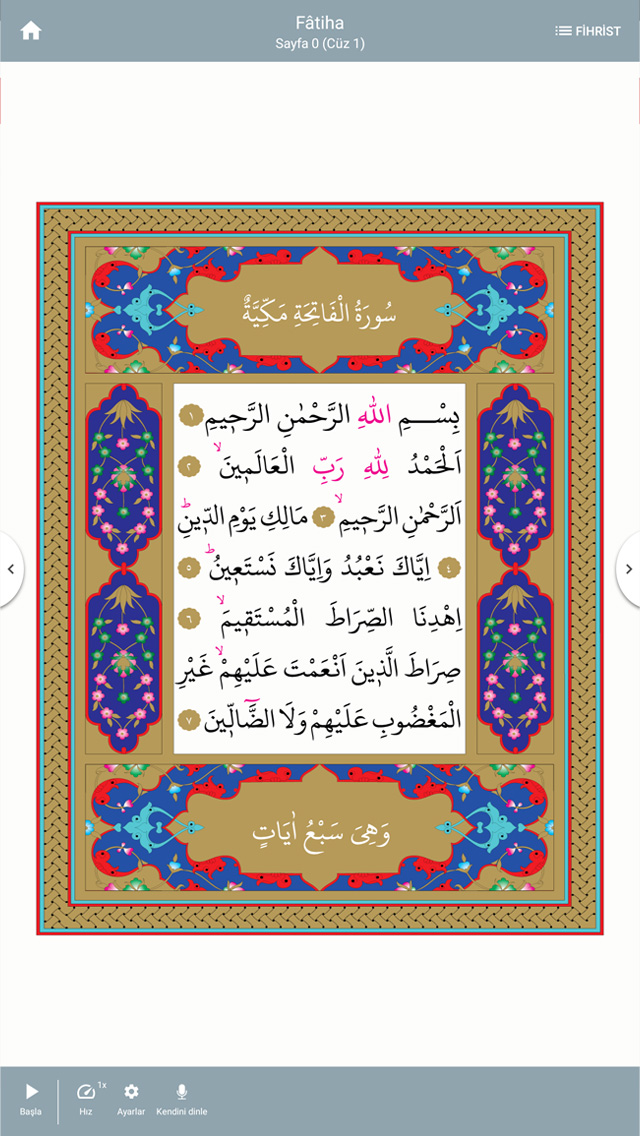 Fâtiha
Sayfa 0 (Cüz 1)
FİHRİST
سُورَةُ الْفَاتِحَةِ مَكِّيَّةٌ
بِسْــمِ اللّٰهِ الرَّحْمٰنِ الرَّح۪يمِ ١
اَلْحَمْدُ لِلّٰهِ رَبِّ الْعَالَم۪ينَۙ ٢
اَلرَّحْمٰنِ الرَّح۪يمِۙ ٣ مَالِكِ يَوْمِ الدّ۪ينِۜ
٤ اِيَّاكَ نَعْبُدُ وَاِيَّاكَ نَسْتَع۪ينُۜ ٥
اِهْدِنَا الصِّرَاطَ الْمُسْتَق۪يمَۙ ٦
صِرَاطَ الَّذ۪ينَ اَنْعَمْتَ عَلَيْهِمْۙ غَيْرِ
الْمَغْضُوبِ عَلَيْهِمْ وَلَا الضَّٓالّ۪ينَ ٧
وَهِىَ سَبْعُ اٰيَاتٍ
Başla
1x
Hız
Ayarlar
Kendini dinle